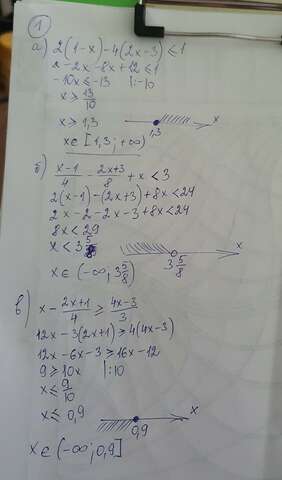 1
а) 2(1-x)-4(2x-3)≤1
2-2x-8x+12≤1
-10x≤-13 |:-10
x≥13/10
x≥1,3 1,3 x
x∈[1,3;+∞)
б) (x-1)/4 - (2x+3)/8 + x < 3
2(x-1)-(2x+3)+8x<24
2x-2-2x-3+8x<24
8x<29
x<3 5/8 3 5/8 x
x∈(-∞;3 5/8)
в) x - (2x+1)/4 ≥ (4x-3)/3
12x-3(2x+1)≥4(4x-3)
12x-6x-3≥16x-12
9≥10x |:10
x≤9/10
x≤0,9 0,9 x
x∈(-∞;0,9]